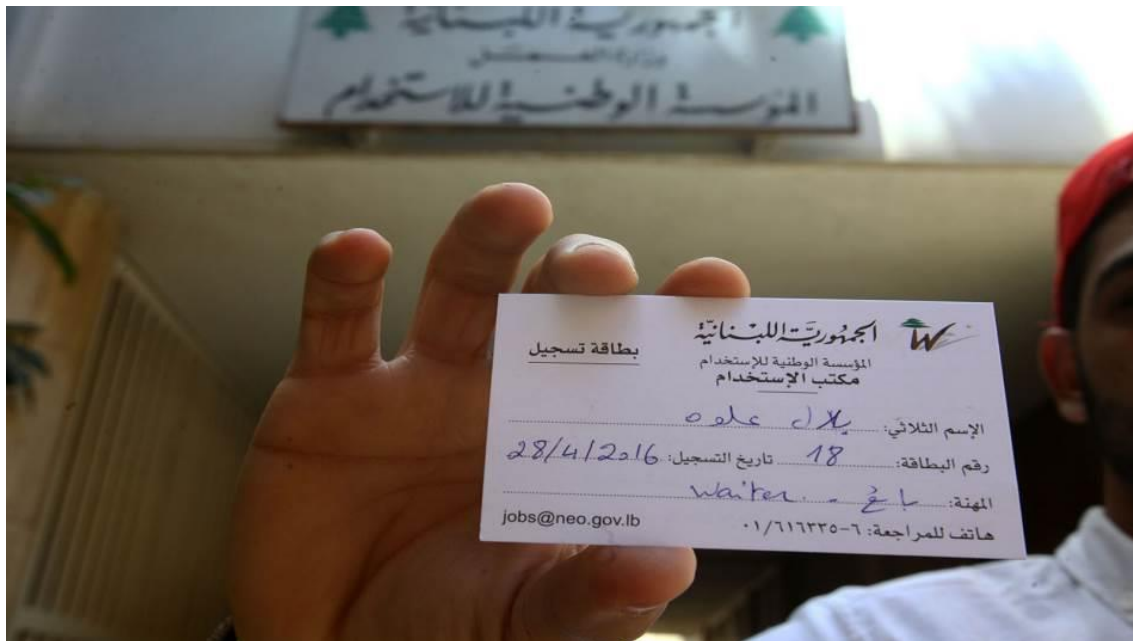 الجمهورية اللبنانية
وزارة العمل
المؤسسة الوطنية للاستخدام
الجمهوريّة اللبنانيّة
المؤسسة الوطنية للإستخدام
مكتب الإستخدام
بطاقة تسجيل
الإسم الثلاثي: بلال علوه
رقم البطاقة: 18 تاريخ التسجيل: 28/4/2016
المهنة: بائع - waiter
هاتف للمراجعة: ٦-٠١/٦١٦٣٣٥
jobs@neo.gov.lb